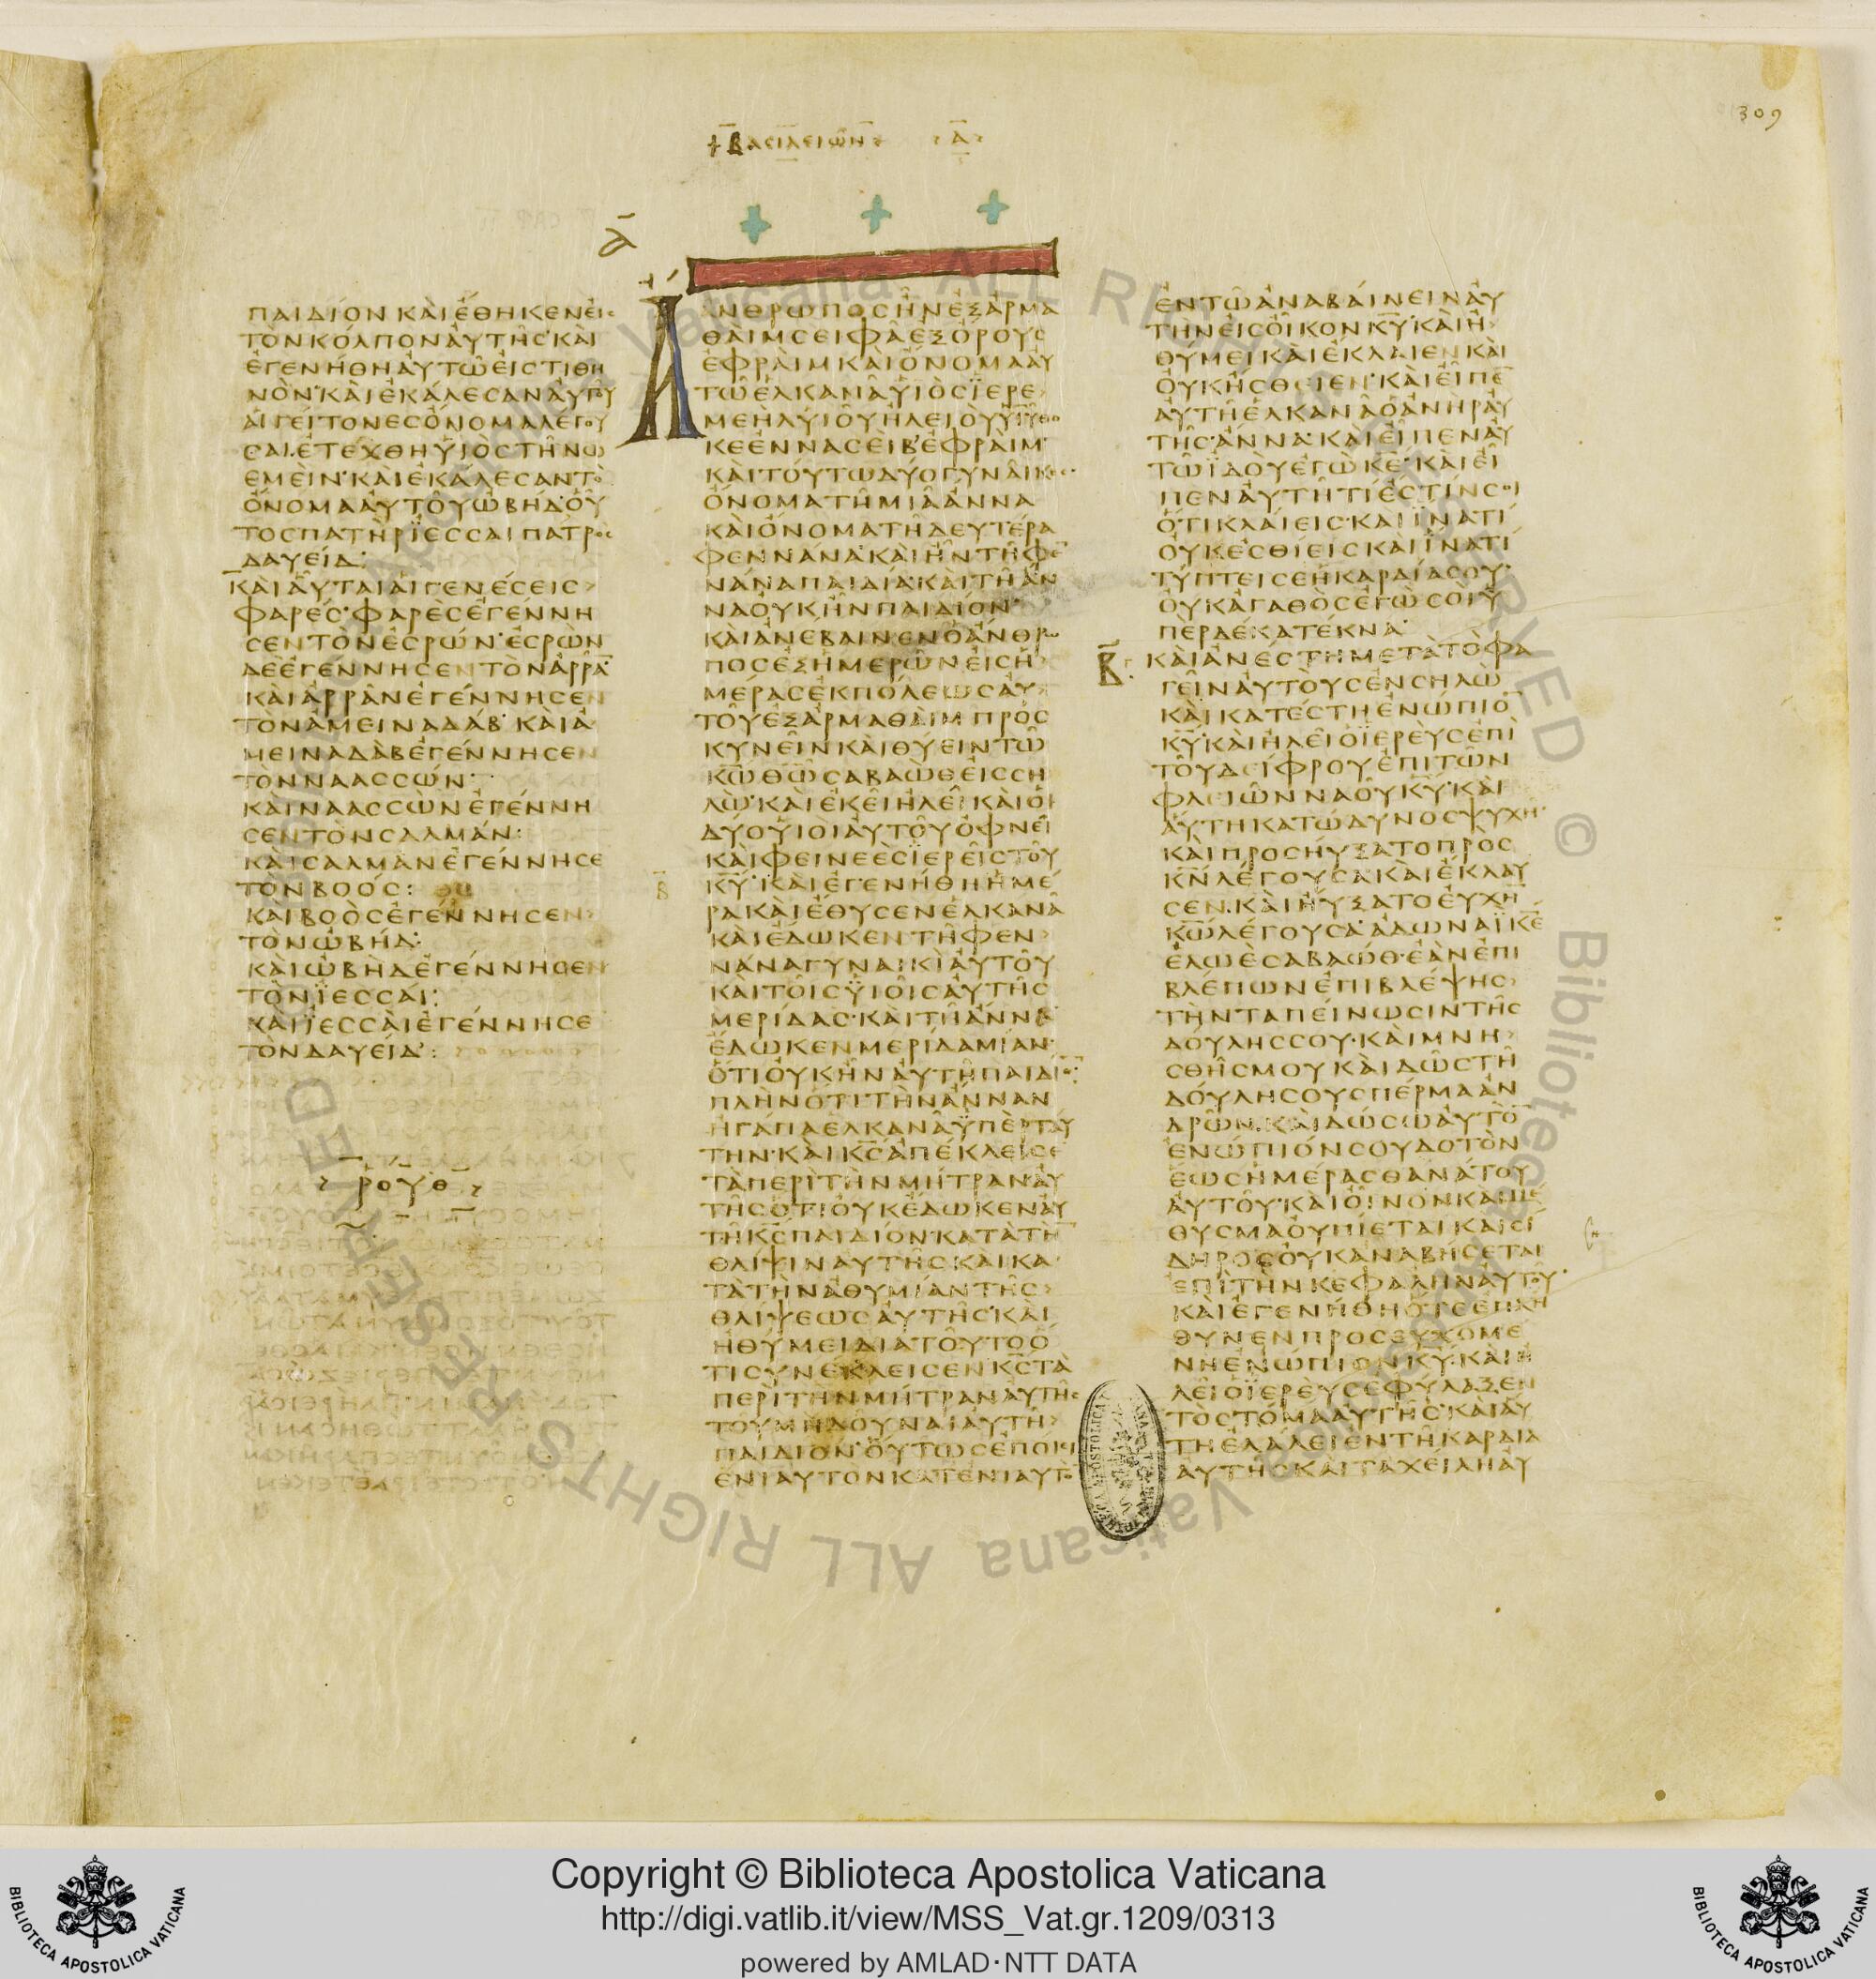 309
ΒΑΣΙΛΕΙΩΝ Α
Α
ΠΑΙΔΙΟΝ ΚΑΙ ΕΘΗΚΕΝ ΕΙΣ
ΤΟΝ ΚΟΛΠΟΝ ΑΥΤΗΣ ΚΑΙ
ΕΓΕΝΗΘΗ ΑΥΤΩ ΕΙΣ ΤΙΘΗ
ΝΟΝ ΚΑΙ ΕΚΑΛΕΣΑΝ ΑΥΤΟΥ
ΑΙ ΓΕΙΤΟΝΕΣ ΟΝΟΜΑ ΛΕΓΟΥ
ΣΑΙ ΕΤΕΧΘΗ ΥΙΟΣ ΤΗ ΝΩ
ΕΜΕΙΝ ΚΑΙ ΕΚΑΛΕΣΑΝ ΤΟ
ΟΝΟΜΑ ΑΥΤΟΥ ΩΒΗΔ ΟΥ
ΤΟΣ ΠΑΤΗΡ ΙΕΣΣΑΙ ΠΑΤΡΟΣ
ΔΑΥΕΙΔ
ΚΑΙ ΑΥΤΑΙ ΑΙ ΓΕΝΕΣΕΙΣ
ΦΑΡΕΣ ΦΑΡΕΣ ΕΓΕΝΝΗ
ΣΕΝ ΤΟΝ ΕΣΡΩΝ ΕΣΡΩΝ
ΔΕ ΕΓΕΝΝΗΣΕΝ ΤΟΝ ΑΡΡΑ
ΚΑΙ ΑΡΡΑΝ ΕΓΕΝΝΗΣΕΝ
ΤΟΝ ΑΜΕΙΝΑΔΑΒ ΚΑΙ Α
ΜΕΙΝΑΔΑΒ ΕΓΕΝΝΗΣΕΝ
ΤΟΝ ΝΑΑΣΣΩΝ
ΚΑΙ ΝΑΑΣΣΩΝ ΕΓΕΝΝΗ
ΣΕΝ ΤΟΝ ΣΑΛΜΑΝ
ΚΑΙ ΣΑΛΜΑΝ ΕΓΕΝΝΗΣΕ
ΤΟΝ ΒΟΟΣ
ΚΑΙ ΒΟΟΣ ΕΓΕΝΝΗΣΕΝ
ΤΟΝ ΩΒΗΔ
ΚΑΙ ΩΒΗΔ ΕΓΕΝΝΗΣΕΝ
ΤΟΝ ΙΕΣΣΑΙ
ΚΑΙ ΙΕΣΣΑΙ ΕΓΕΝΝΗΣΕ
ΤΟΝ ΔΑΥΕΙΔ
ΡΟΥΘ
ΑΝΘΡΩΠΟΣ ΗΝ ΕΞ ΑΡΜΑ
ΘΑΙΜ ΣΕΙΦΑ ΕΞ ΟΡΟΥΣ
ΕΦΡΑΙΜ ΚΑΙ ΟΝΟΜΑ ΑΥ
ΤΩ ΕΛΚΑΝΑ ΥΙΟΣ ΙΕΡΕ
ΜΕΗΛ ΥΙΟΥ ΗΛΕΙΟΥ ΥΙΟΥ ΘΟ
ΚΕ ΕΝ ΝΑΣΕΙΒ ΕΦΡΑΙΜ
ΚΑΙ ΤΟΥΤΩ ΔΥΟ ΓΥΝΑΙΚΕΣ
ΟΝΟΜΑ ΤΗ ΜΙΑ ΑΝΝΑ
ΚΑΙ ΟΝΟΜΑ ΤΗ ΔΕΥΤΕΡΑ
ΦΕΝΝΑΝΑ ΚΑΙ ΗΝ ΤΗ ΦΕ
ΝΑΝΑ ΠΑΙΔΙΑ ΚΑΙ ΤΗ ΑΝ
ΝΑ ΟΥΚ ΗΝ ΠΑΙΔΙΟΝ
ΚΑΙ ΑΝΕΒΑΙΝΕΝ Ο ΑΝΘΡΩ
ΠΟΣ ΕΞ ΗΜΕΡΩΝ ΕΙΣ Η
ΜΕΡΑΣ ΕΚ ΠΟΛΕΩΣ ΑΥ
ΤΟΥ ΕΞ ΑΡΜΑΘΑΙΜ ΠΡΟΣ
ΚΥΝΕΙΝ ΚΑΙ ΘΥΕΙΝ ΤΩ
ΚΩ ΘΩ ΣΑΒΑΩΘ ΕΙΣ ΣΗ
ΛΩ ΚΑΙ ΕΚΕΙ ΗΛΕΙ ΚΑΙ ΟΙ
ΔΥΟ ΥΙΟΙ ΑΥΤΟΥ ΟΦΝΕΙ
ΚΑΙ ΦΕΙΝΕΕΣ ΙΕΡΕΙΣ ΤΟΥ
Β
ΚΥ ΚΑΙ ΕΓΕΝΗΘΗ ΗΜΕ
ΡΑ ΚΑΙ ΕΘΥΣΕΝ ΕΛΚΑΝΑ
ΚΑΙ ΕΔΩΚΕΝ ΤΗ ΦΕΝ
ΝΑΝΑ ΓΥΝΑΙΚΙ ΑΥΤΟΥ
ΚΑΙ ΤΟΙΣ ΥΙΟΙΣ ΑΥΤΗΣ
ΜΕΡΙΔΑΣ ΚΑΙ ΤΗ ΑΝΝΑ
ΕΔΩΚΕΝ ΜΕΡΙΔΑ ΜΙΑΝ
ΟΤΙ ΟΥΚ ΗΝ ΑΥΤΗ ΠΑΙΔΙΟ
ΠΛΗΝ ΟΤΙ ΤΗΝ ΑΝΝΑΝ
ΗΓΑΠΑ ΕΛΚΑΝΑ ΥΠΕΡ ΤΑΥ
ΤΗΝ ΚΑΙ ΚΣ ΑΠΕΚΛΕΙΣΕ
ΤΑ ΠΕΡΙ ΤΗΝ ΜΗΤΡΑΝ ΑΥ
ΤΗΣ ΟΤΙ ΟΥΚ ΕΔΩΚΕΝ ΑΥ
ΤΗ ΚΣ ΠΑΙΔΙΟΝ ΚΑΤΑ ΤΗ
ΘΛΙΨΙΝ ΑΥΤΗΣ ΚΑΙ ΚΑ
ΤΑ ΤΗΝ ΑΘΥΜΙΑΝ ΤΗΣ
ΘΛΙΨΕΩΣ ΑΥΤΗΣ ΚΑΙ
ΗΘΥΜΕΙ ΔΙΑ ΤΟΥΤΟ Ο
ΤΙ ΣΥΝΕΚΛΕΙΣΕΝ ΚΣ ΤΑ
ΠΕΡΙ ΤΗΝ ΜΗΤΡΑΝ ΑΥΤΗΣ
ΤΟΥ ΜΗ ΔΟΥΝΑΙ ΑΥΤΗ
ΠΑΙΔΙΟΝ ΟΥΤΩΣ ΕΠΟΙΕΙ
ΕΝΙΑΥΤΟΝ ΚΑΤ ΕΝΙΑΥΤΟ
ΕΝ ΤΩ ΑΝΑΒΑΙΝΕΙΝ ΑΥ
ΤΗΝ ΕΙΣ ΟΙΚΟΝ ΚΥ ΚΑΙ Η
ΘΥΜΕΙ ΚΑΙ ΕΚΛΑΙΕΝ ΚΑΙ
ΟΥΚ ΗΣΘΙΕΝ ΚΑΙ ΕΙΠΕ
ΑΥΤΗ ΕΛΚΑΝΑ Ο ΑΝΗΡ ΑΥ
ΤΗΣ ΑΝΝΑ ΚΑΙ ΕΙΠΕΝ ΑΥ
ΤΩ ΙΔΟΥ ΕΓΩ ΚΕ ΚΑΙ ΕΙ
ΠΕΝ ΑΥΤΗ ΤΙ ΕΣΤΙΝ ΣΟΙ
ΟΤΙ ΚΛΑΙΕΙΣ ΚΑΙ ΙΝΑ ΤΙ
ΟΥΚ ΕΣΘΙΕΙΣ ΚΑΙ ΙΝΑ ΤΙ
ΤΥΠΤΕΙ ΣΕ Η ΚΑΡΔΙΑ ΣΟΥ
ΟΥΚ ΑΓΑΘΟΣ ΕΓΩ ΣΟΙ Υ
ΠΕΡ ΔΕΚΑ ΤΕΚΝΑ
Β
ΚΑΙ ΑΝΕΣΤΗ ΜΕΤΑ ΤΟ ΦΑ
ΓΕΙΝ ΑΥΤΟΥΣ ΕΝ ΣΗΛΩ
ΚΑΙ ΚΑΤΕΣΤΗ ΕΝΩΠΙΟ
ΚΥ ΚΑΙ ΗΛΕΙ Ο ΙΕΡΕΥΣ ΕΠΙ
ΤΟΥ ΔΙΦΡΟΥ ΕΠΙ ΤΩΝ
ΦΛΕΙΩΝ ΝΑΟΥ ΚΥ ΚΑΙ
ΑΥΤΗ ΚΑΤΩΔΥΝΟΣ ΨΥΧΗ
ΚΑΙ ΠΡΟΣΗΥΞΑΤΟ ΠΡΟΣ
ΚΝ ΛΕΓΟΥΣΑ ΚΑΙ ΕΚΛΑΥ
ΣΕΝ ΚΑΙ ΗΥΞΑΤΟ ΕΥΧΗ
ΚΩ ΛΕΓΟΥΣΑ ΑΔΩΝΑΙ ΚΕ
ΕΛΩΕ ΣΑΒΑΩΘ ΕΑΝ ΕΠΙ
ΒΛΕΠΩΝ ΕΠΙΒΛΕΨΗΣ
ΤΗΝ ΤΑΠΕΙΝΩΣΙΝ ΤΗΣ
ΔΟΥΛΗΣ ΣΟΥ ΚΑΙ ΜΝΗ
ΣΘΗΣ ΜΟΥ ΚΑΙ ΔΩΣ ΤΗ
ΔΟΥΛΗ ΣΟΥ ΣΠΕΡΜΑ ΑΝ
ΔΡΩΝ ΚΑΙ ΔΩΣΩ ΑΥΤΟ
ΕΝΩΠΙΟΝ ΣΟΥ ΔΟΤΟΝ
ΕΩΣ ΗΜΕΡΑΣ ΘΑΝΑΤΟΥ
ΑΥΤΟΥ ΚΑΙ ΟΙΝΟΝ ΚΑΙ ΜΕ
ΘΥΣΜΑ ΟΥ ΠΙΕΤΑΙ ΚΑΙ ΣΙ
ΔΗΡΟΣ ΟΥΚ ΑΝΑΒΗΣΕΤΑΙ
ΕΠΙ ΤΗΝ ΚΕΦΑΛΗΝ ΑΥΤΟΥ
ΚΑΙ ΕΓΕΝΗΘΗ ΟΤΕ ΕΠΛΗ
ΘΥΝΕΝ ΠΡΟΣΕΥΧΟΜΕ
ΝΗ ΕΝΩΠΙΟΝ ΚΥ ΚΑΙ Η
ΛΕΙ Ο ΙΕΡΕΥΣ ΕΦΥΛΑΞΕΝ
ΤΟ ΣΤΟΜΑ ΑΥΤΗΣ ΚΑΙ ΑΥ
ΤΗ ΕΛΑΛΕΙ ΕΝ ΤΗ ΚΑΡΔΙΑ
ΑΥΤΗΣ ΚΑΙ ΤΑ ΧΕΙΛΗ ΑΥ
Copyright © Biblioteca Apostolica Vaticana
http://digi.vatlib.it/view/MSS_Vat.gr.1209/0313
powered by AMLAD·NTT DATA
BIBLIOTECA APOSTOLICA VATICANA
BIBLIOTECA APOSTOLICA VATICANA